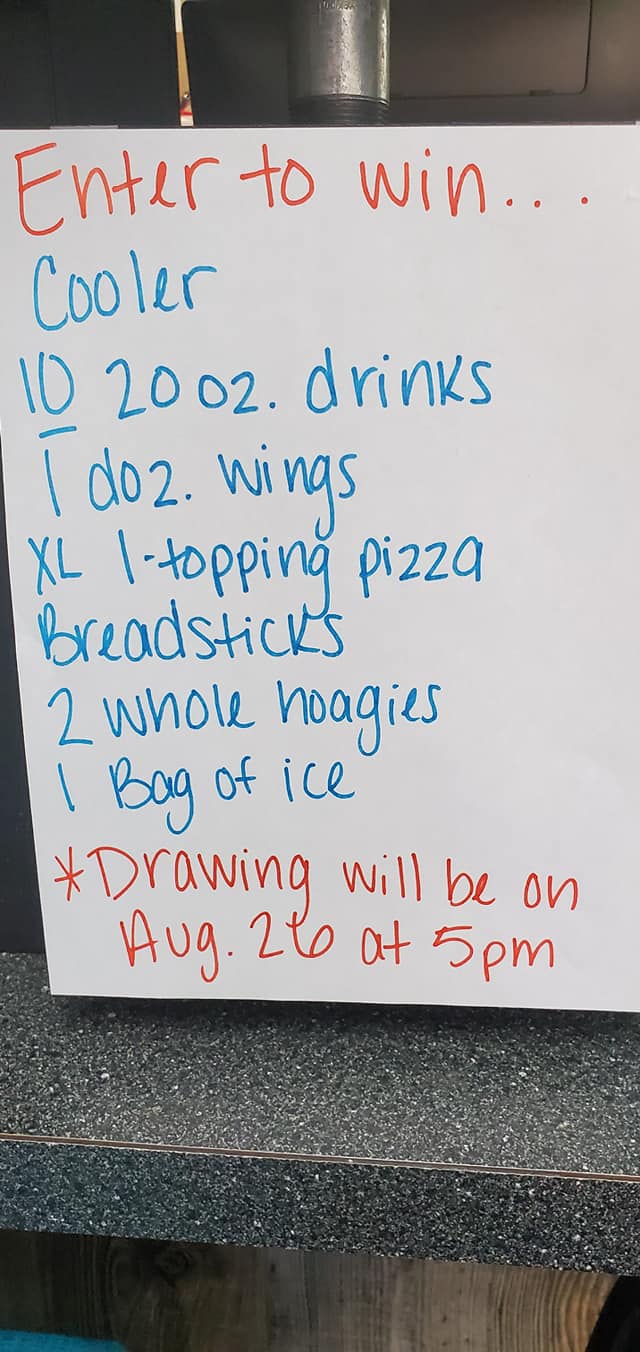 Enter to win...
Cooler
10 20 oz. drinks
1 doz. wings
XL 1-topping pizza
Breadsticks
2 whole hoagies
1 Bag of ice
*Drawing will be on
Aug. 26 at 5pm